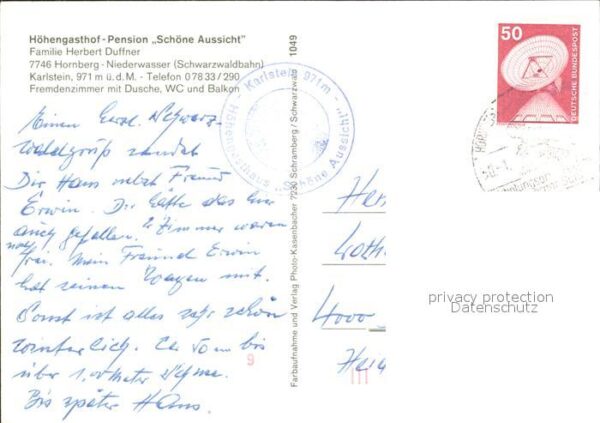 Höhengasthof - Pension „Schöne Aussicht"
Familie Herbert Duffner
7746 Hornberg - Niederwasser (Schwarzwaldbahn)
Karlstein, 971 m ü. d. M. - Telefon 0 78 33 / 290
Fremdenzimmer mit Dusche, WC und Balkon
1049
Karlstein 971m - Höhengasthaus „Schöne Aussicht"
50
DEUTSCHE BUNDESPOST
Einen Schwarz-
waldgruß sendet
Dir Hans nebst Freund
Erwin. Dir hätte das hier
auch gefallen. 2 Zimmer waren
noch frei. Mein Freund Erwin
hat seinen Wagen mit.
Sonst ist alles sehr schön
winterlich. bis
über 1,00 Meter
Bis später Hans.
Farbaufnahme und Verlag Photo-Kasenbacher 7230 Schramberg / Schwarzw
Her
Loth
4000
9
privacy protection
Datenschutz